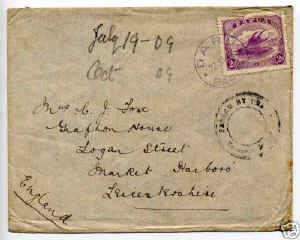 July 19-09
Oct 09
PAPUA
DAR
Mrs C. J. Fox
Grafton House
Logan Street
Market Harboro
Leicestershire
England